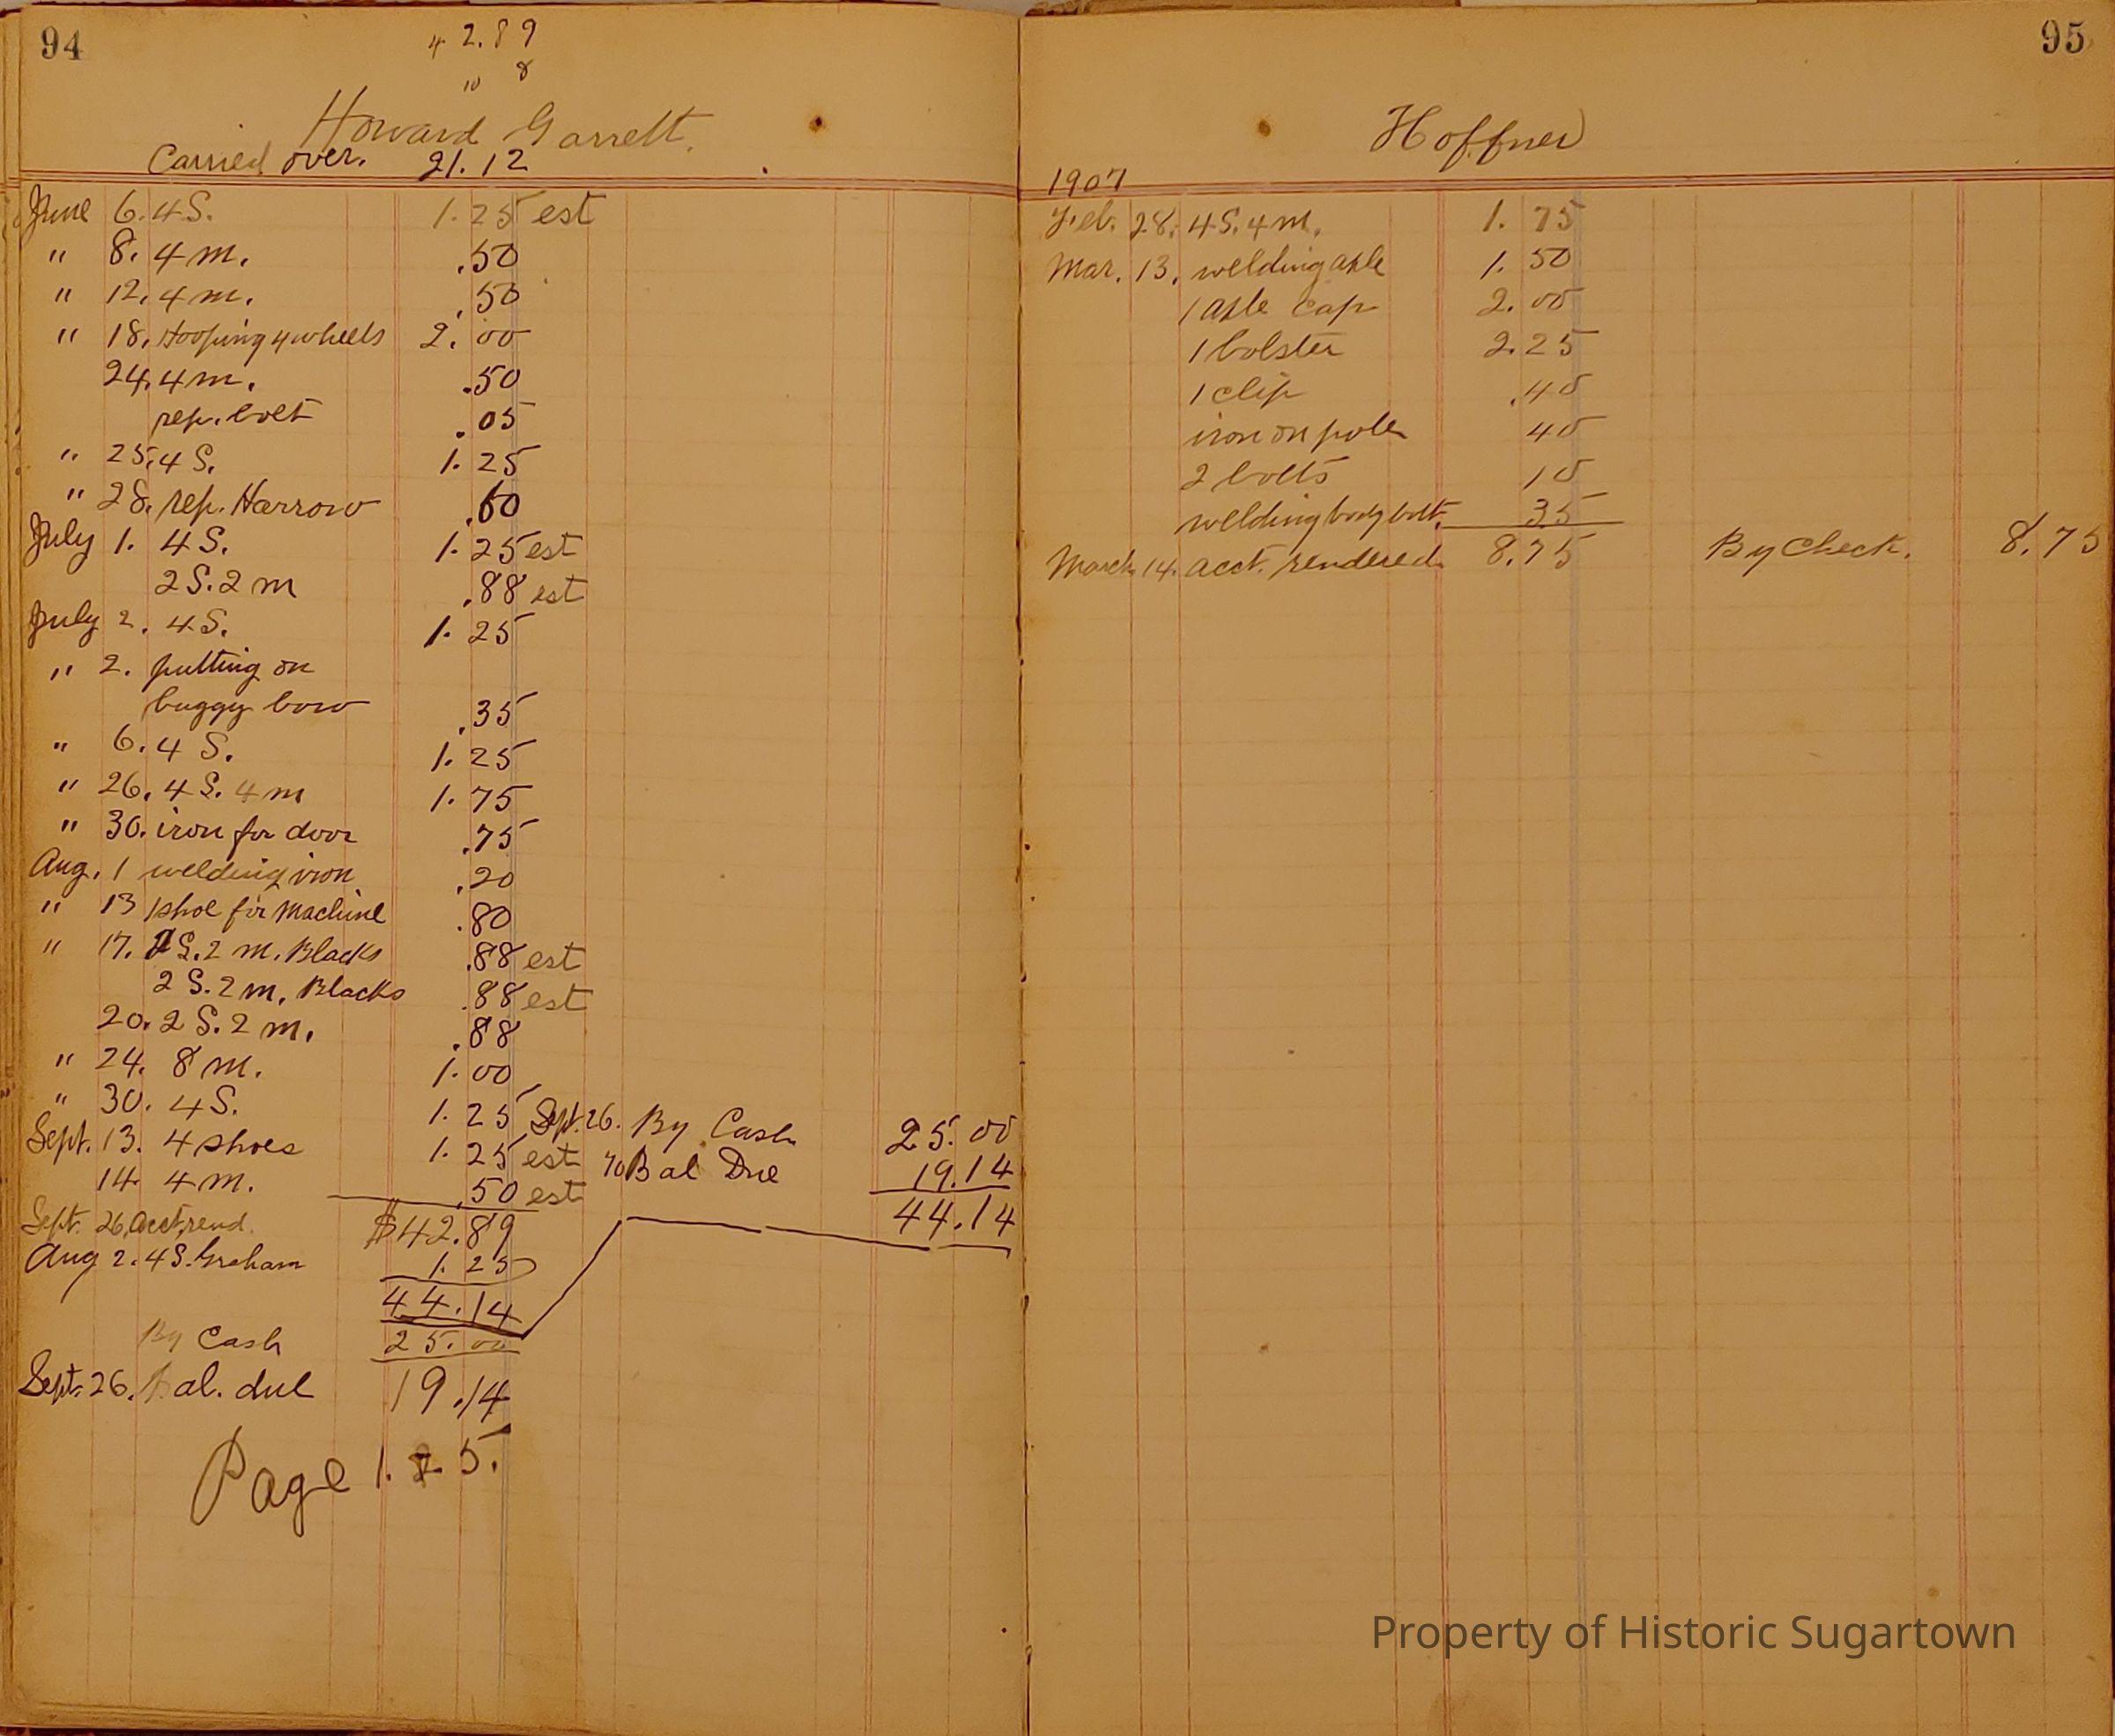 94
42.89
10 8
Howard Garrett.
Carried over. 21.12
June 6. 4 S. 1.25 est
" 8. 4 m. .50
" 12. 4 m. .50
" 18. Hooping 4 wheels 2.00
24. 4 m. .50
rep. bolt .05
" 25. 4 S. 1.25
" 28. rep. Harrow .60
July 1. 4 S. 1.25 est
2 S. 2 m .88 est
July 2. 4 S. 1.25
" 2. putting on
buggy bow .35
" 6. 4 S. 1.25
" 26. 4 S. 4 m 1.75
" 30. iron for door .75
Aug. 1 welding iron .20
" 13 1 shoe for Machine .80
" 17. 2 S. 2 m. Blacks .88 est
2 S. 2 m. Blacks .88 est
20. 2 S. 2 m. .88
" 24. 8 m. 1.00
" 30. 4 S. 1.25 Sept. 26. By Cash 25.00
Sept. 13. 4 shoes 1.25 est Bal Due 19.14
14 4 m. .50 est 44.14
Sept. 26, acct, rend. $42.89
Aug 2. 4 S. Graham 1.25
44.14
By Cash 25.00
Sept. 26. Bal. due 19.14
Page 1 5.
95
Hoffner
1907
Feb. 28. 4 S. 4 m. 1.75
Mar. 13. welding axle 1.50
1 axle cap 2.00
1 bolster 2.25
1 clip .40
iron on pole 40
2 bolts 10
welding body bolt. 35
March 14. acct. rendered 8.75 By Check. 8.75
Property of Historic Sugartown